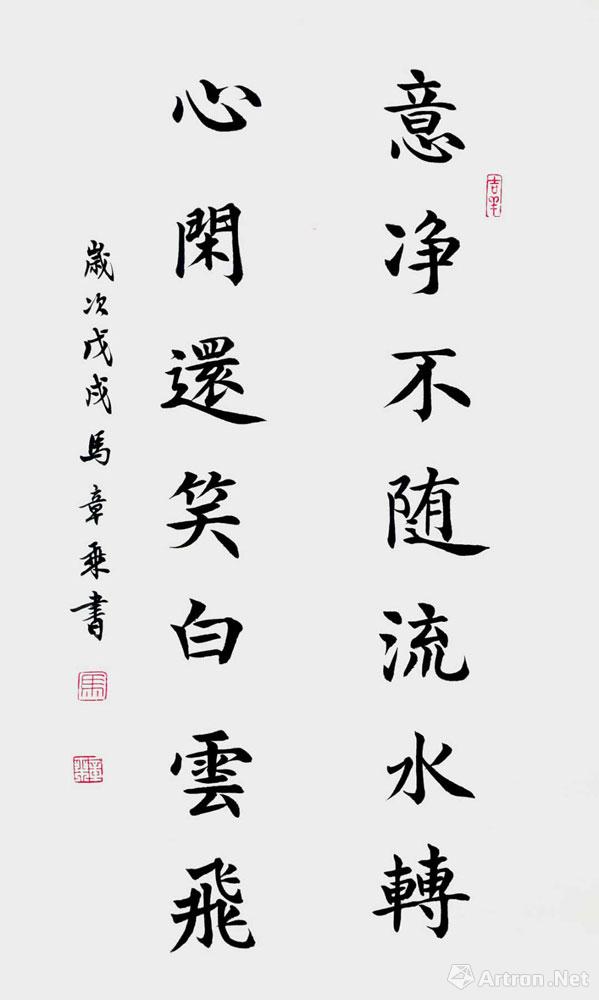 意净不随流水轉
心閑還笑白雲飛
歲次戊戌馬章乘書
吉羊
馬
Artron.Net